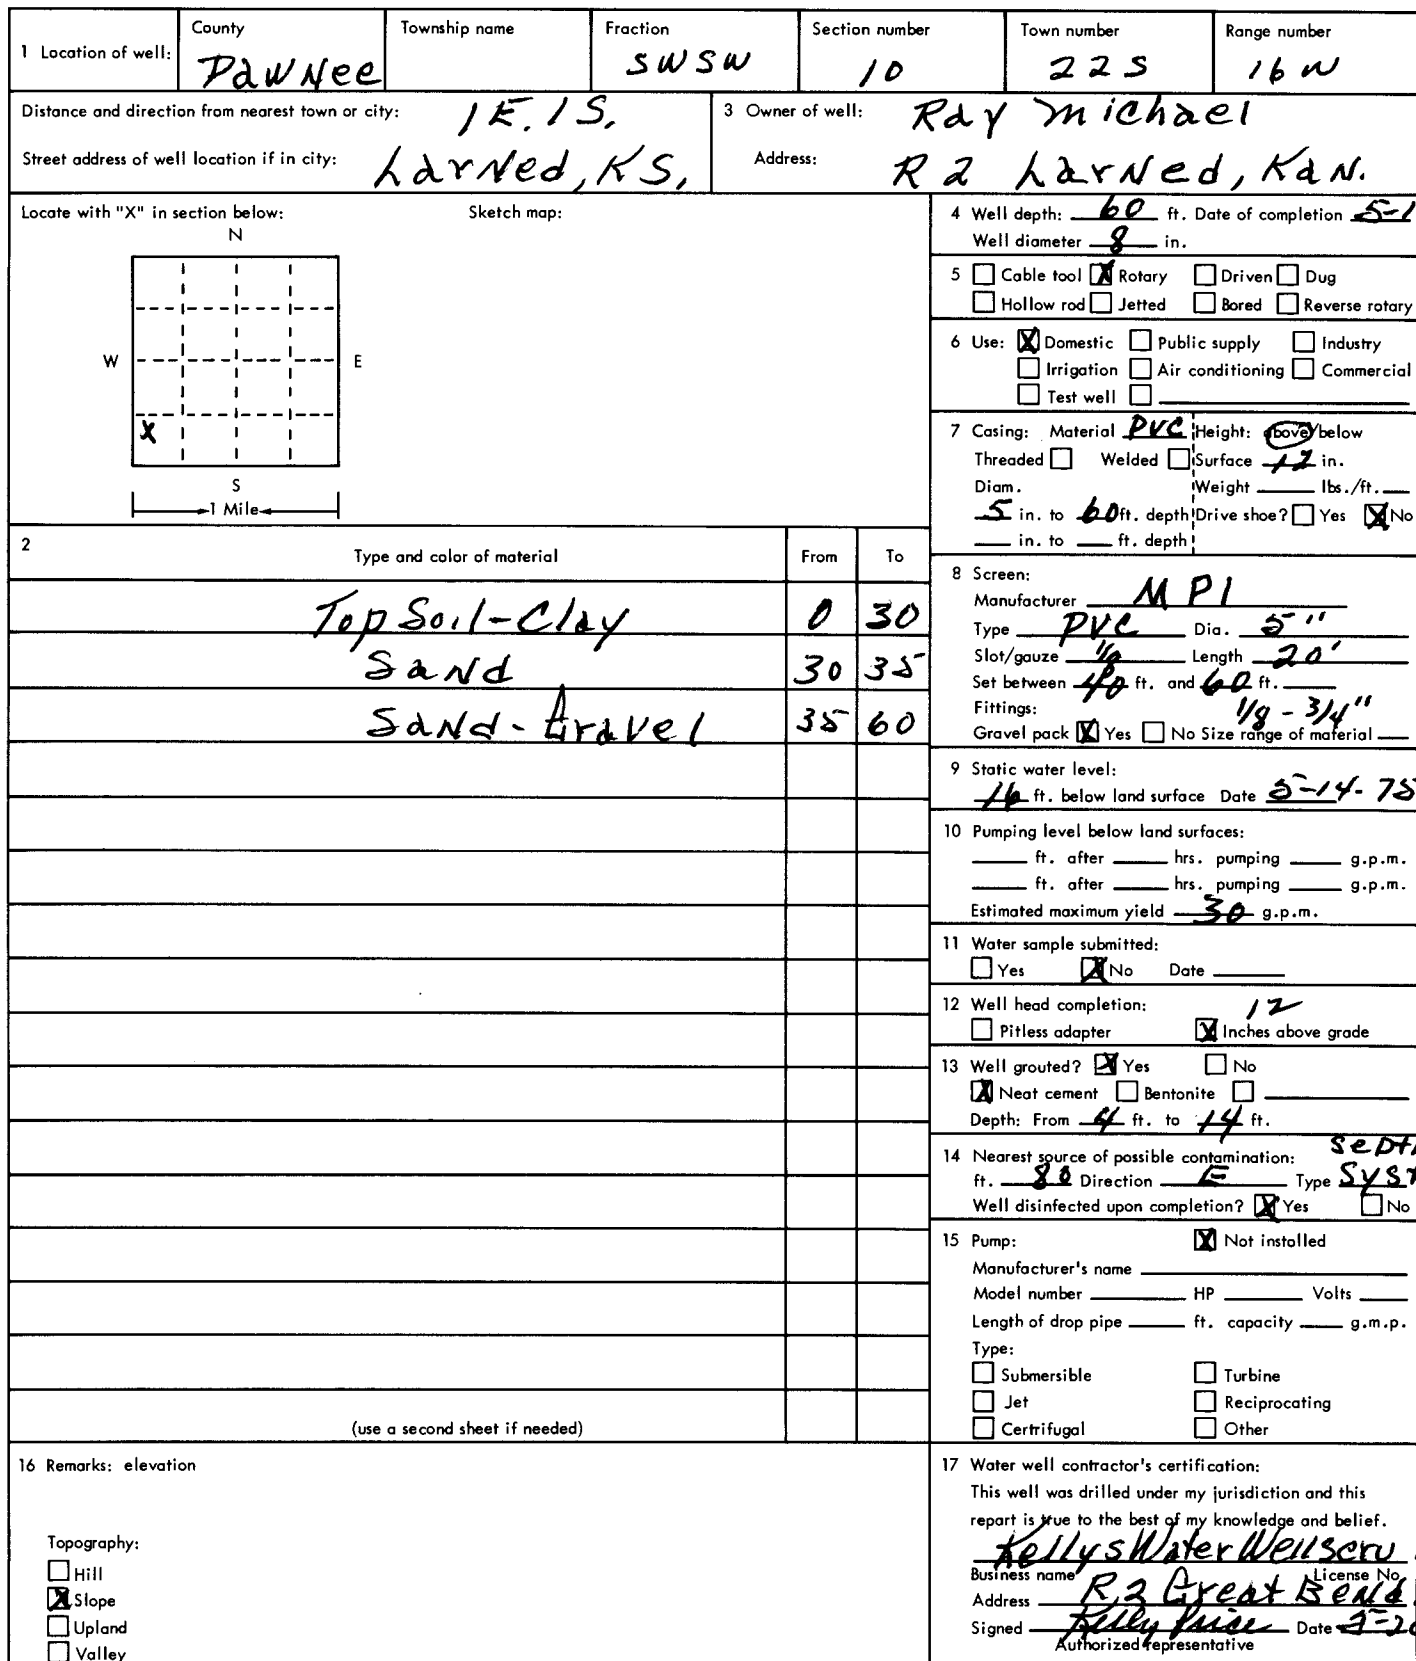 1 Location of well: County Township name Fraction Section number Town number Range number
Pawnee SWSW 10 22S 16W
Distance and direction from nearest town or city: 1E. 1S. 3 Owner of well: Ray Michael
Street address of well location if in city: Larned, KS, Address: R 2 Larned, Kan.
Locate with "X" in section below: Sketch map:
N
W E
X
S
1 Mile
2 Type and color of material From To
Top Soil-Clay 0 30
Sand 30 35
Sand-Gravel 35 60
(use a second sheet if needed)
4 Well depth: 60 ft. Date of completion 5-1
Well diameter 8 in.
5 Cable tool X Rotary Driven Dug
Hollow rod Jetted Bored Reverse rotary
6 Use: X Domestic Public supply Industry
Irrigation Air conditioning Commercial
Test well
7 Casing: Material PVC Height: above/below
Threaded Welded Surface 12 in.
Diam. Weight lbs./ft.
5 in. to 60 ft. depth Drive shoe? Yes X No
in. to ft. depth
8 Screen:
Manufacturer MPI
Type PVC Dia. 5"
Slot/gauze Length 20'
Set between 40 ft. and 60 ft.
Fittings: 1/8 - 3/4"
Gravel pack X Yes No Size range of material
9 Static water level:
16 ft. below land surface Date 5-14-75
10 Pumping level below land surfaces:
ft. after hrs. pumping g.p.m.
ft. after hrs. pumping g.p.m.
Estimated maximum yield 30 g.p.m.
11 Water sample submitted:
Yes X No Date
12 Well head completion: 12
Pitless adapter X Inches above grade
13 Well grouted? X Yes No
X Neat cement Bentonite
Depth: From 4 ft. to 14 ft.
14 Nearest source of possible contamination: Septi
ft. 80 Direction E Type Syst
Well disinfected upon completion? X Yes No
15 Pump: X Not installed
Manufacturer's name
Model number HP Volts
Length of drop pipe ft. capacity g.m.p.
Type:
Submersible Turbine
Jet Reciprocating
Certrifugal Other
16 Remarks: elevation
Topography:
Hill
X Slope
Upland
Valley
17 Water well contractor's certification:
This well was drilled under my jurisdiction and this
report is true to the best of my knowledge and belief.
Kellys Water Well Serv
Business name License No.
Address R.2 Great Bend
Signed Kelly Price Date
Authorized representative